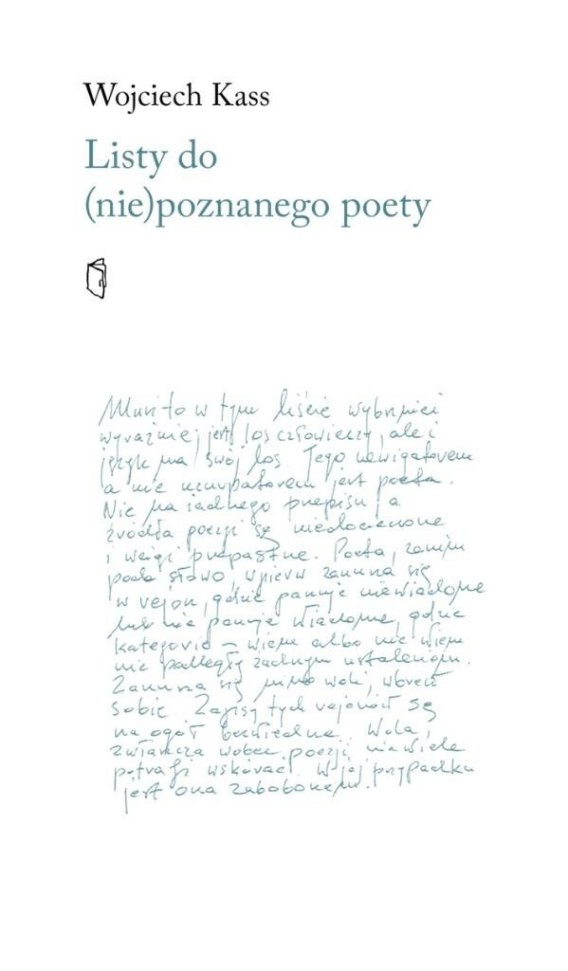 Wojciech Kass
Listy do
(nie)poznanego poety
Musi to w tym liście wybrzmieć
wyraźniej: jest los człowieczy, ale i
język ma swój los. Jego nawigatorem
a nie uzurpatorem jest poeta.
Nie ma żadnego przepisu, a
źródła poezji są niedocieczone
i wciąż przepastne. Poeta, zanim
poda słowo, wpierw zanurza się
w rejon, gdzie panuje niewiadome
lub nie panuje wiadome, gdzie
kategorie – wiem albo nie wiem
nie podległy żadnym ustaleniom.
Zanurza się mimo woli, wbrew
sobie. Zapisy tych rejonów są
na ogół bezwiedne. Wola,
zwłaszcza wobec poezji niewiele
potrafi wskórać. W jej przypadku
jest ona zabobonem.